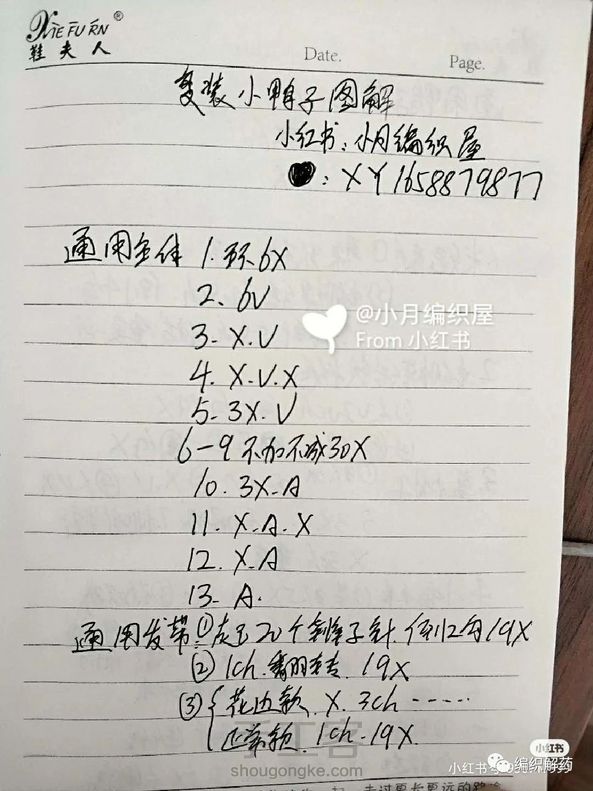 XIE FU RN®
鞋夫人
Date. Page.
变装小鸭子图解
小红书:小月编织屋
:XY1658879877
通用主体 1.环6X
2.6V
3-X.V
@小月编织屋
From 小红书
4.X.V.X
5-3X.V
6-9不加不减30X
10.3X-A
11.X.A.X
12.X.A
13-A.
通用发带①起20个辫子针.倒2勾19X
②1ch.翻转.19X
③{花边款.X.3ch.....
正常款.1ch-19X.
手工客
shougongke.com
小红书
小红书号
编织解药